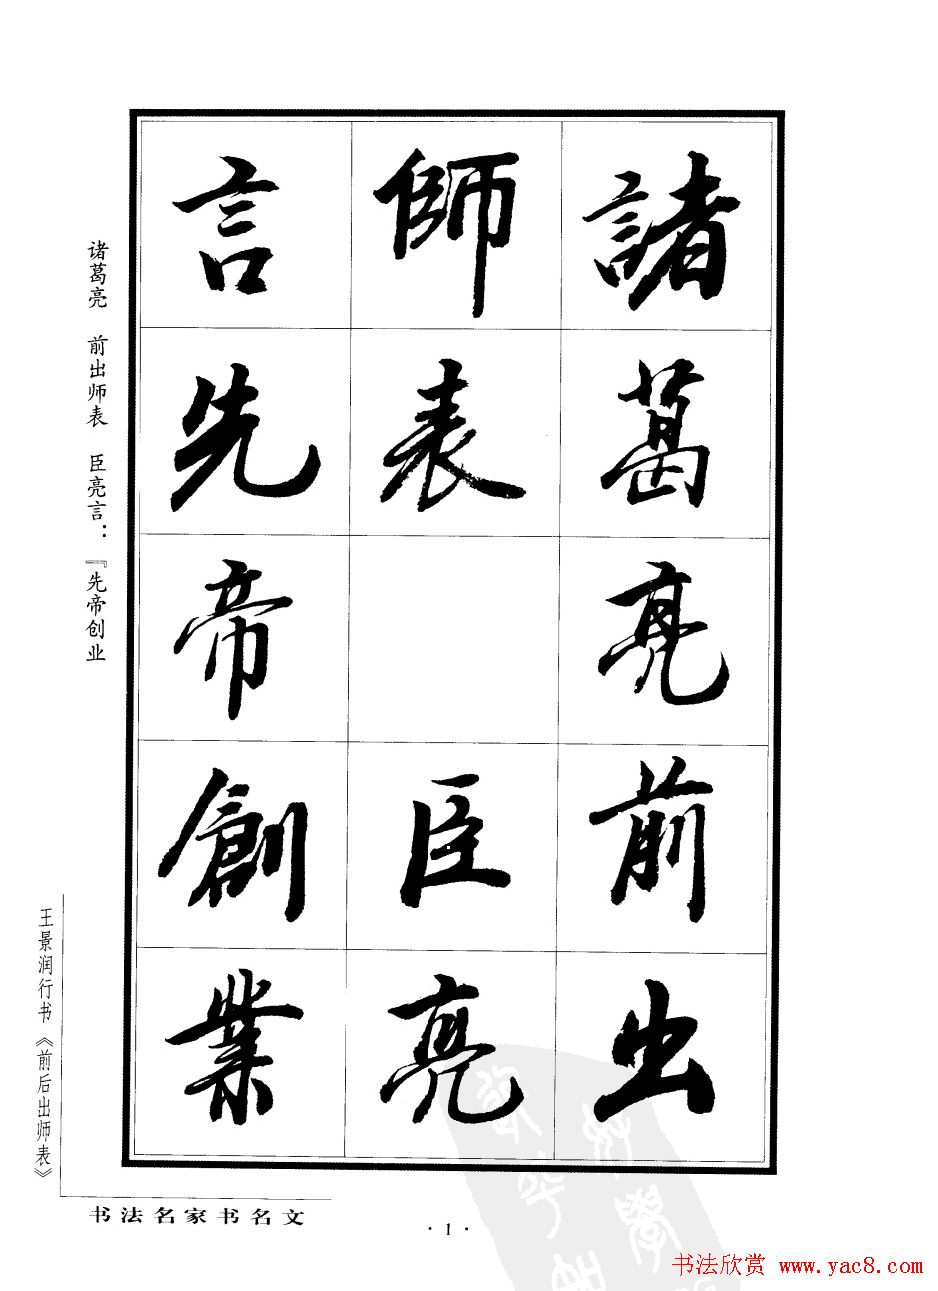 諸葛亮前出
師表 臣亮
言先帝創業
诸葛亮 前出师表 臣亮言：『先帝创业
王景润行书《前后出师表》
书法名家书名文
·1·
书法欣赏 www.yac8.com